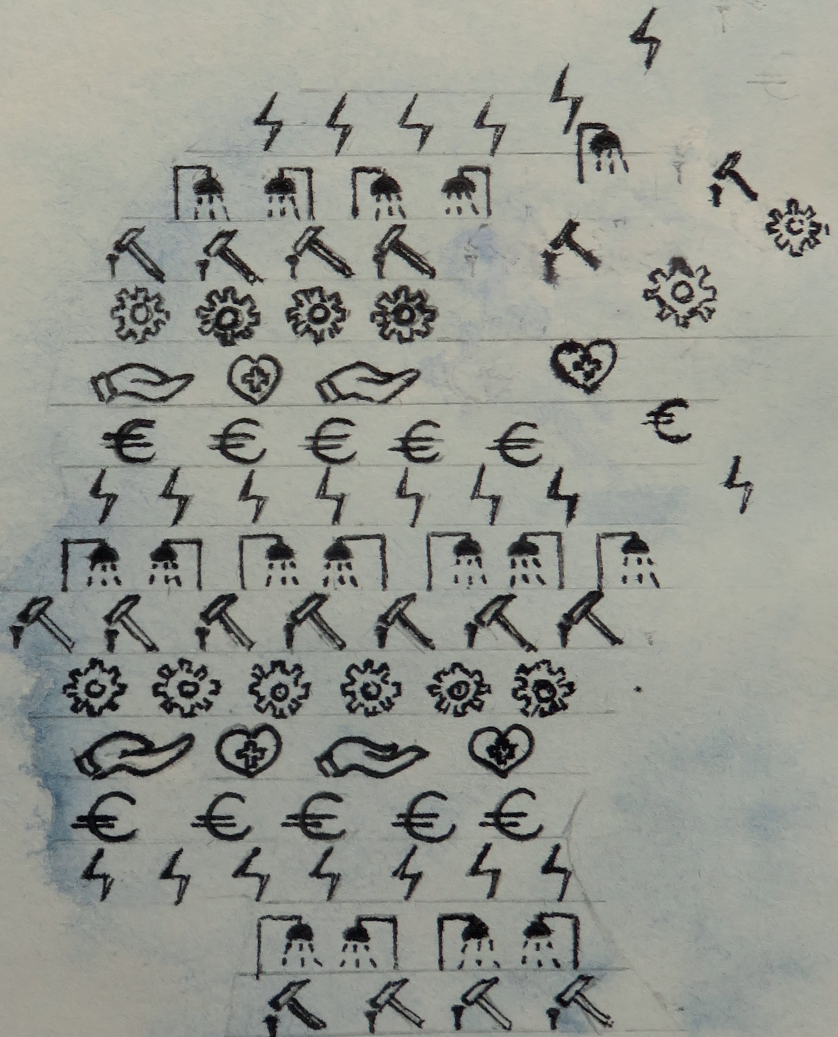 €
€ € € € €
€ € € € €